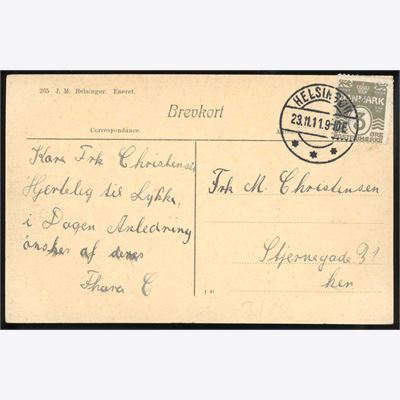 265 J. M. Helsingør. Eneret.
Brevkort
Correspondánce.
HELSINGØR
23.11.11.9-10E
DANMARK
3
ØRE
Kære Frk Christensen
Hjertelig til Lykke,
i Dagen Anledning
ønskes af deres
Thora C
Frk M. Christensen
Stjernegade
her